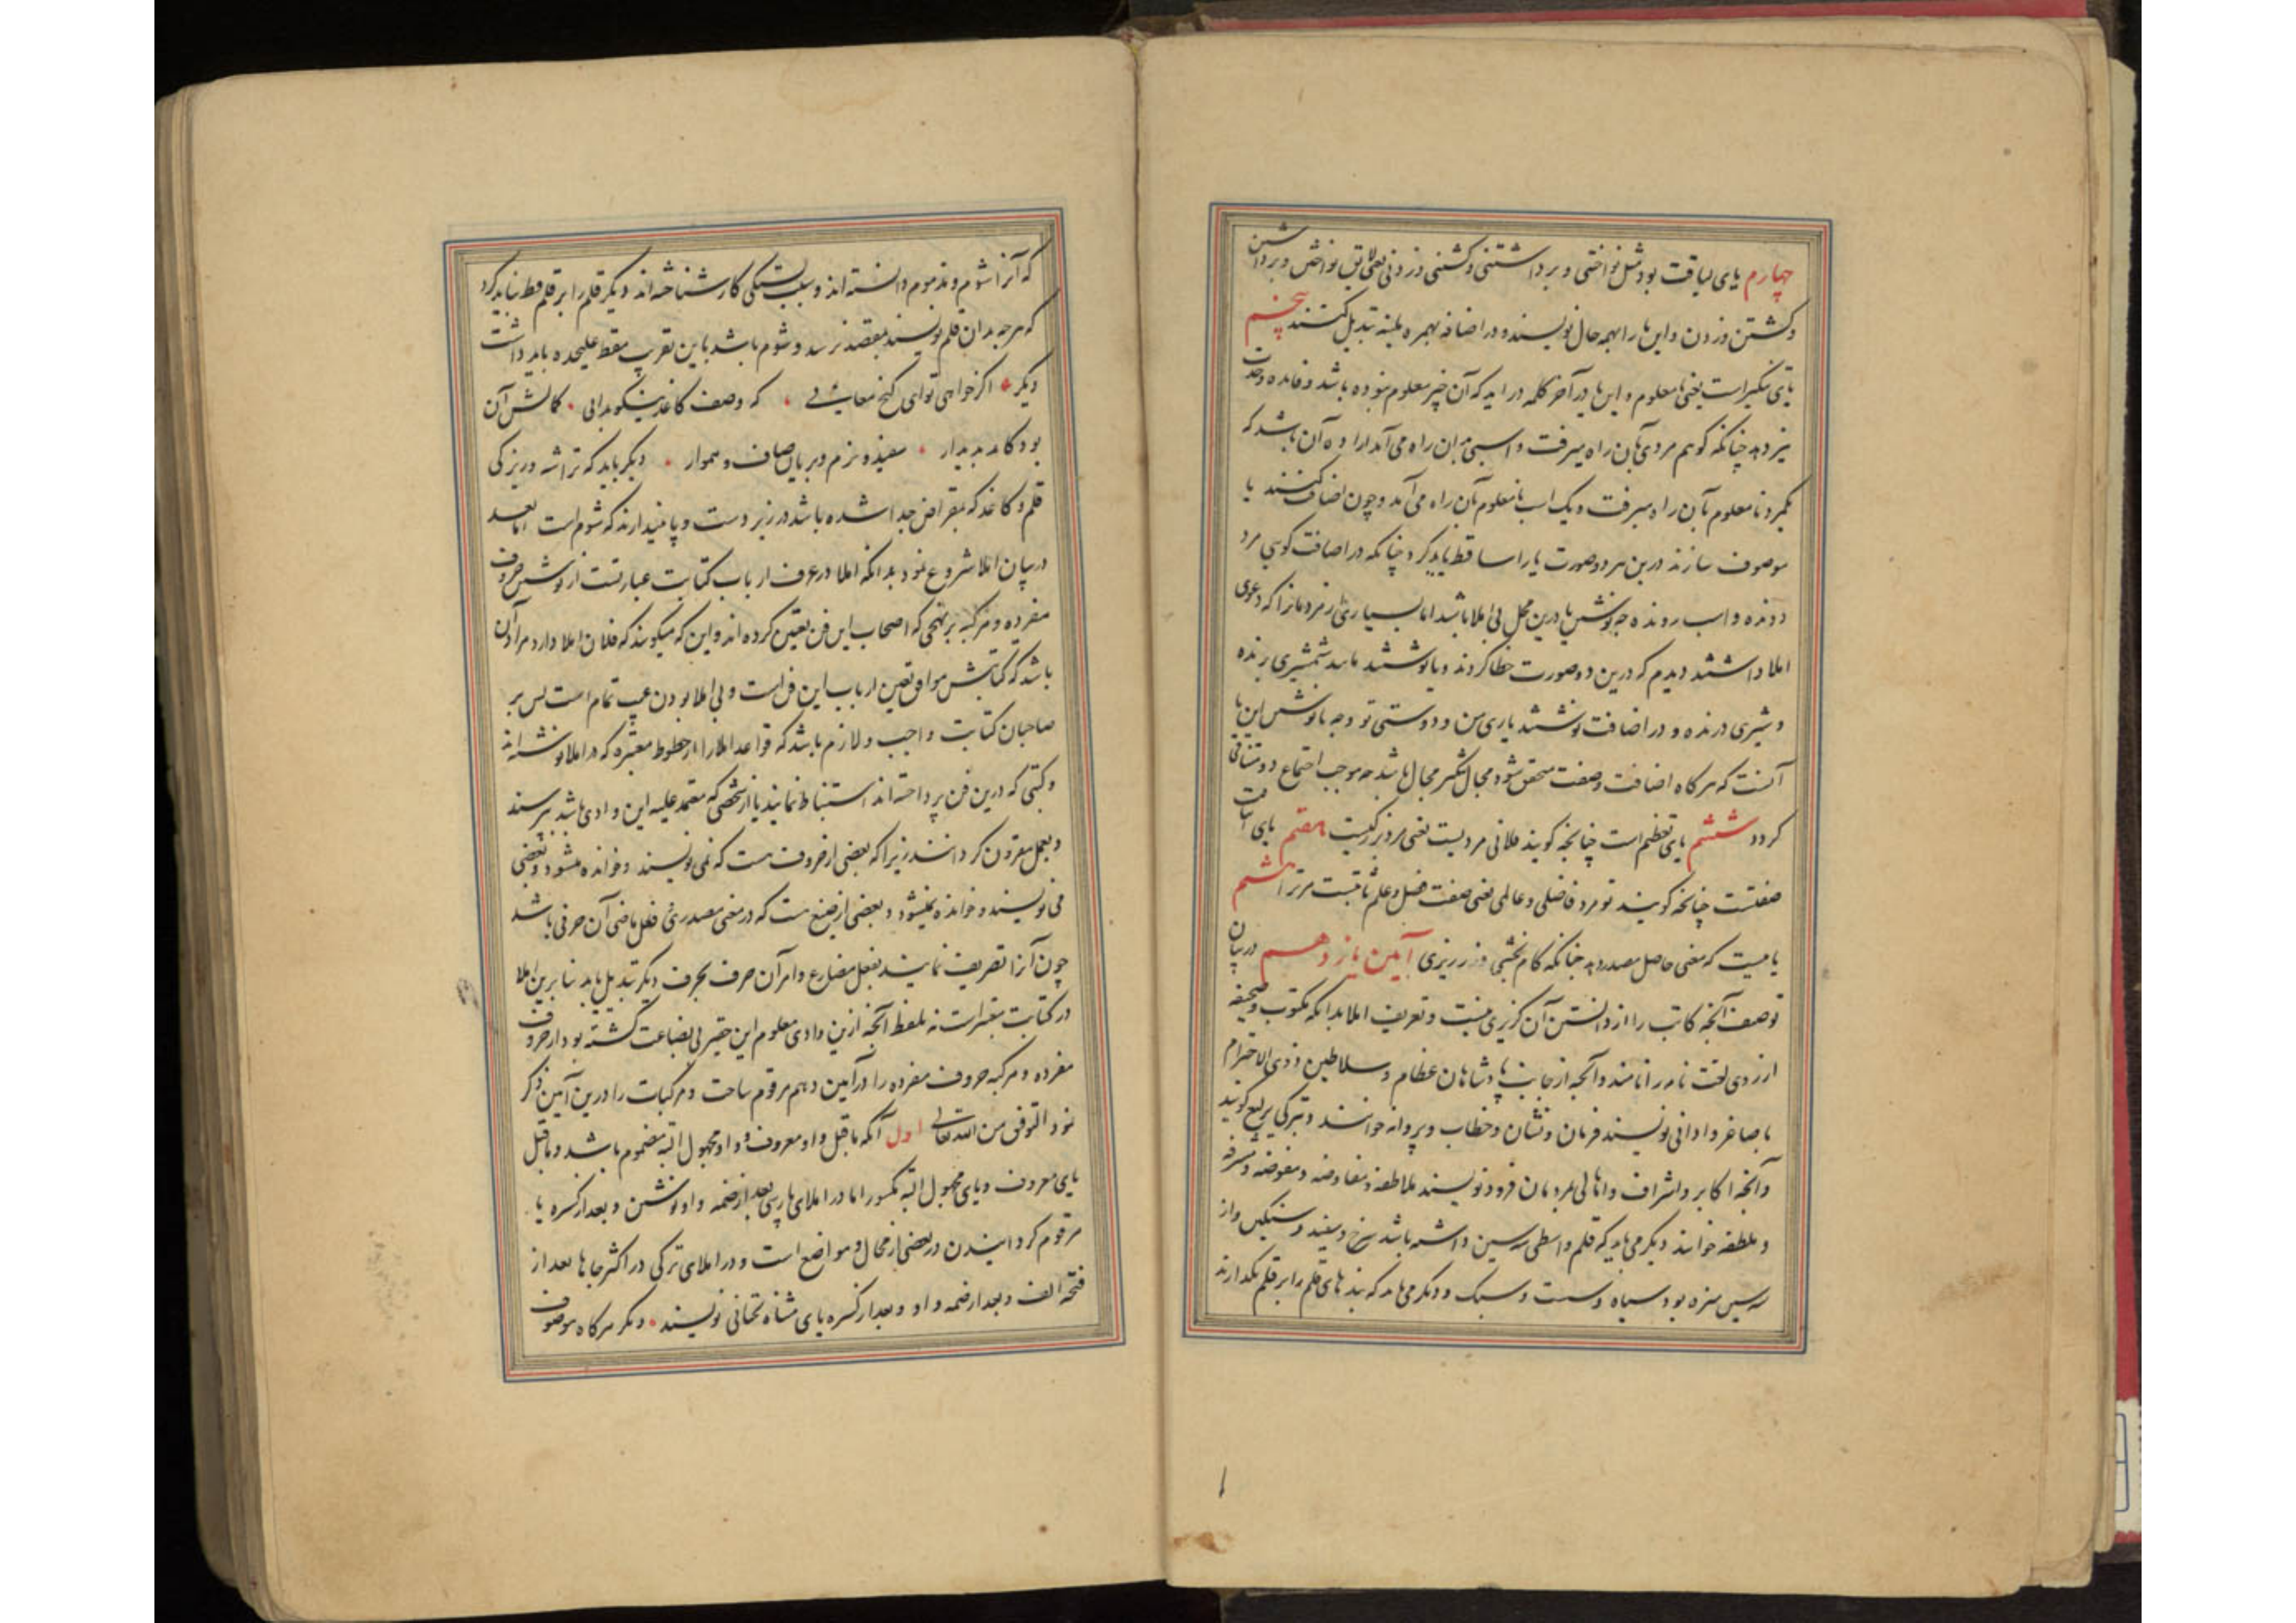 چهارم یای لیاقت بود مثل نواختنی و برداشتنی و کشتنی و زدنی یعنی لایق نواختن و برداشتن
و کشتن و زدن و این یا را بهمه حال نویسند و در اضافه بهمزه ملینه تبدیل کنند پنجم
یای تنکیر است یعنی نامعلوم و این یا در آخر کلمه در اید که آن چیز معلوم نبوده باشد و فایده وحدت
نیز دهد چنانکه گوهم مردی بآن راه میرفت و اسبی بران راه می آمد اراده آن باشد که
یکمرد نامعلوم بآن راه میرفت و یک اسب نامعلوم بآن راه می آمد و چون اضافت کنند یا
موصوف سازند درین هر دو صورت یا را ساقط باید کرد چنانکه در اضافت گویی مرد
دونده و اسب رونده چه نوشتن یا درین محل بی املا باشد اما بسیاری از مردمانرا که دعوی
املا داشتند دیدم که درین دو صورت خطا کردند و یا نوشتند مانند شمشیری برنده
و شیری درنده و در اضافت نوشتند یاری من و دوستی تو و چه نانوشتن این یا
آنست که هرگاه اضافت و صفت متحقق شود مجال تنکیر محال باشد چه موجب اجتماع دو متنافی
گردد ششم یای تعظیم است چنانچه گویند فلانی مردیست یعنی مرد بزرگیست هفتم یای اثبات
صفتست چنانچه گویند تو مرد فاضلی و عالمی یعنی صفت فضل و علم ثابتست مر ترا هشتم
یائیست که معنی حاصل مصدر دهد چنانکه کام بخشی و زرریزی آیین یازدهم در بیان
توصیف آنچه کاتب را از دانستن آن گزیری نیست و تعریف املا بدانکه مکتوب و صحیفه
از روی لغت نامه را نامند و آنچه از جانب پادشاهان عظام و سلاطین ذوی الاحترام
باصاغر و ادانی نویسند فرمان و نشان و خطاب و پروانه خوانند و بترکی یرلیغ گویند
و آنچه اکابر و اشراف و اهالی بمردمان فرود نویسند ملاطفه و مفاوضه و مفوضه و مشرفه
و ملطفه خوانند دیگر می باید که قلم واسطی سه سین داشته باشد سرخ و سفید و سنگین و از
سه سین منزه بود سیاه و سست و سبک و دیگر می باید که بند های قلم را بر قلم نگدارند
که آنرا شوم و مذموم دانسته اند و سبب بستگی کار شناخته اند دیگر قلم را بر قلم قط نباید کرد
که هر چه بدان قلم نویسند بمقصد نرسد و شوم باشد باین تقریب مقط علیحده باید داشت
دیگر اگر خواهی توای گنج معانی که وصف کاغذ نیکو بدانی کمالش آن
بود کامد پدیدار سفید و نرم و بریان صاف و هموار دیگر باید که تراشه و ریزکی
قلم و کاغذ که بمقراض جدا شده باشد در زیر دست و پا نیندازند که شوم است اما بعد
در بیان املا شروع نمود بدانکه املا در عرف ارباب کتابت عبارتست از نوشتن حروف
مفرده و مرکبه بر نهجی که اصحاب این فن تعیین کرده اند و این که میگویند که فلان املا دارد مراد آن
باشد که کتابتش موافق تعیین ارباب این فن است و بی املا بودن عیب تمام است پس بر
صاحبان کتابت واجب و لازم باشد که قواعد املا را از خطوط معتبره که در املا نوشته اند
و کتبی که درین فن پرداخته اند استنباط نمایند یا از شخصی که معتمد علیه این وادی باشد بپرسند
و بعمل مقرون گردانند زیرا که بعضی از حروف هست که نمی نویسند و خوانده میشود و بعضی
می نویسند و خوانده نمیشود و بعضی از صیغ هست که در معنی مصدری فعل ماضی آن حرفی باشد
چون آنرا تصریف نمایند بفعل مضارع و امر آن حرف بحرف دیگر تبدیل یابد بنابرین املا
در کتابت معتبر است نه بلفظ آنچه ازین وادی معلوم این حقیر بی بضاعت گشته بود از حروف
مفرده و مرکبه حروف مفرده را در آیین دهم مرقوم ساخت و مرکبات را درین آیین ذکر
نمود التوفیق من الله تعالی اول آنکه ماقبل واو معروف و واو مجهول البته مضموم باشد و ماقبل
یای معروف و یای مجهول البته مکسور اما در املای پارسی بعد از ضمه واو نوشتن و بعد از کسره یا
مرقوم گردانیدن در بعضی از محال و مواضع است و در املای ترکی در اکثر جاها بعد از
فتحه الف و بعد از ضمه واو و بعد از کسره یای مثناة تحتانی نویسند دیگر هرگاه موصوف